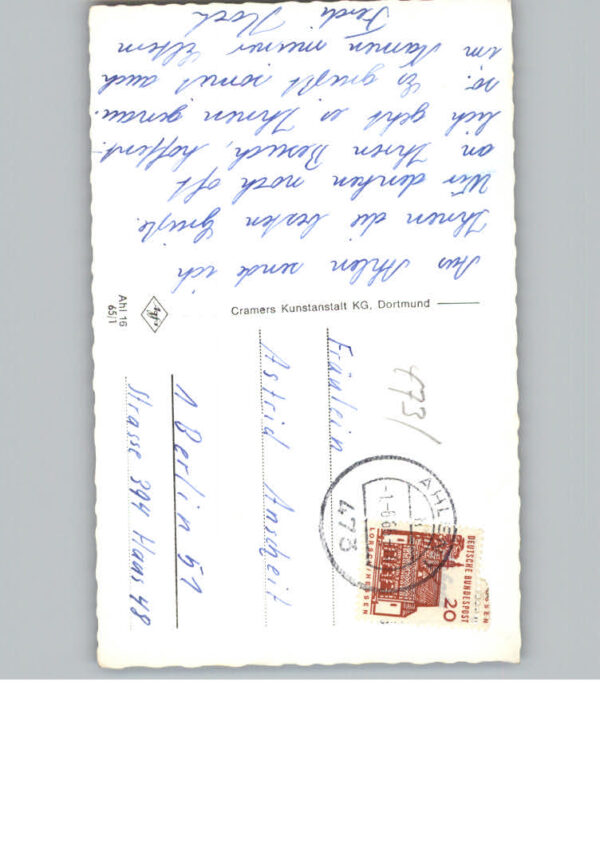 Aus Ahlen sende ich
Ihnen die besten Grüße.
Wir denken noch oft
an Ihren Besuch, hoffent-
lich geht es Ihnen genau
so. Es grüßt somit auch
im Namen meiner Eltern
Ferdi Hoch
Cramers Kunstanstalt KG, Dortmund
Agfa
Ahl 16
65/1
473/
Fräulein
Astrid Anscheit
1 Berlin 51
Strasse 394 Haus 48
AHLEN
473
DEUTSCHE BUNDESPOST
20
LORSCH/HESSEN